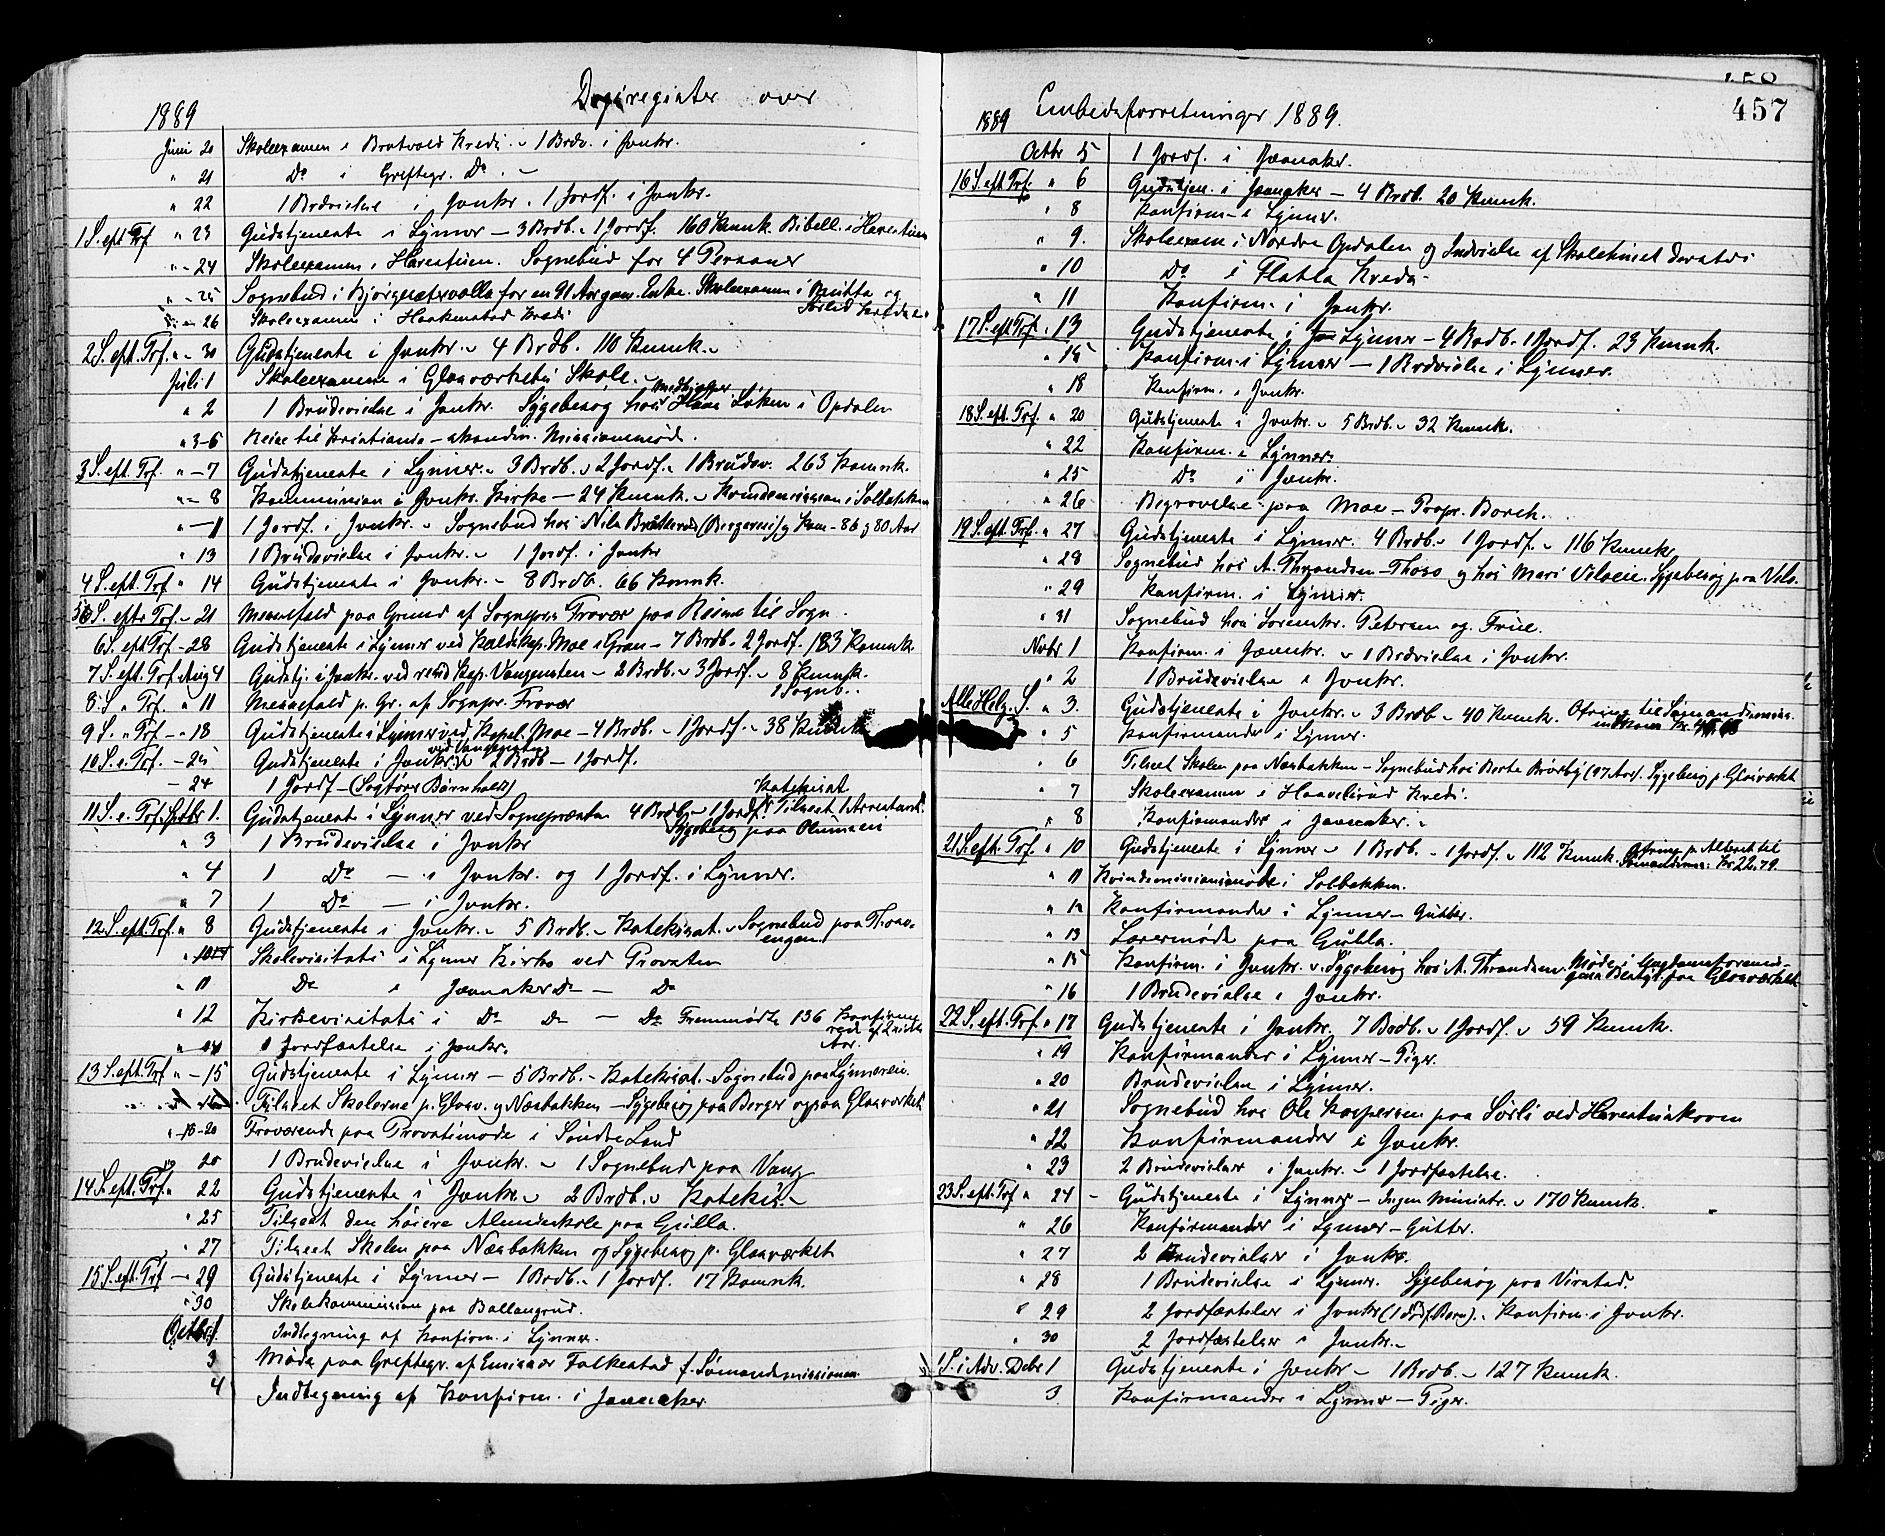 Dagsregister over
1889
Juni 20 Skoleexamen i Bratvold Kreds. 1 Brdv. i Jevnkr.
" 21 Do i Greftegr. Do. -
" 22 1 Brdvielse i Jevnkr. 1 Jordf. i Jevnkr.
1 S. eft Trf " 23 Gudstjeneste i Lynner - 3 Brdb. 1 Jordf. 160 Kmnk. Bibell. i Harestuen
" - 24 Skoleexamen i Harestuen. Sognebud for 4 Personer
" - 25 Sognebud i Bjørgesætervolla for en 91 Aar gam. Enke. Skoleexamen i Brutta og Sørlid Kredse
" - 26 Skoleexamen i Haakenstad Kreds
2 S. eft. Trf. " - 30 Gudstjeneste i Jevnkr. 4 Brdb. 110 Kmnk.
Juli 1 Skoleexamen i Glasværkets Skole.
" 2 1 Brudevielse i Jevnkr. Sygebesøg hos Medhjelper Hans Løken i Opdalen
" 3-6 Reise til Kristiania - skandin. Missionsmøde.
3 S. eft. Trf. " - 7 Gudstjeneste i Lynner. 3 Brdb. 2 Jordf. 1 Brudev. 263 Komnk.
" - 8 Kommunion i Jevnkr. Kirke - 24 Kmnk. Kvindemission i Solbakken
" - 11 1 Jordf. i Jevnkr. Sognebud hos Nils (Bergerei) og Kone - 86 og 80 Aar
" 13 1 Brudevielse i Jevnkr. 1 Jordf. i Jevnkr
4 S. eft. Trf " 14 Gudstjeneste i Jevnkr. - 8 Brdb. 66 Komnk.
5 S. eftr Trf. - 21 Messefald paa Grund af Sognepræs Fravær paa Reise til Sogn.
6 S. eft Trf - 28 Gudstjeneste i Lynner ved Kaldskap. Moe i Gran - 7 Brdb. 2 Jordf. 183 Komnk.
7 S. eft. Trf. Aug 4 Gudstj. i Jevnkr. ved resid Kap. Vangensten - 2 Brdb. 3 Jordf. 8 Kmnk. 1 Sogneb.
8 S " Trf. " 11 Messefald p. Gr. af Sognpr. Fravær
9 S. " Trf - - 18 Gudstjeneste i Lynner ved Kapel. Moe - 4 Brdb. - 1 Jordf. - 38 Kmnk
10 S. e. Trf. - 25 Gudstjeneste i Jevnkr. ved Vangensten 2 Brdb - 1 Jordf.
- 24 1 Jordf - (Sogtørs Børnholdt)
11 S. e. Trf. Septbr 1. Gudstjeneste i Lynner ved Sognepræsten 4 Brdb. - 1 Jordf. Katekisat Tilseet 1 Arrestant. Sygebesøg paa Olumseie
" 3 1 Brudevielse i Jevnkr
" 4 1 Do - i Jevnkr. og 1 Jordf. i Lynner.
" 7 1 Do - i Jevnkr.
12 S. eft. Trf. " 8 Gudstjeneste i Jevnkr. 5 Brdb. - Katekisat. Sognebud paa Thrav-engen.
" 10 Skolevisitats i Lynner Kirke ved Provsten
" 11 Do i Jævnaker Do - Do
" 12 Kirkevisitats i Do Do - Do Fremmødte 136 Konfirmerede af 2 sidste Aar.
" 14 1 Jordfæstelse i Jevnkr.
13 S. eft. Trf " - 15 Gudstjeneste i Lynner - 5 Brdb. - Katekisat. Sognebud paa Lynnereie.
Tilseet Skolerne p. Glasv. og Næsbakken - Sygebesøg paa Berger og paa Glasværket
" 18-20 Fraværende paa Provstimøde i Søndre Land
20 1 Brudevielse i Jevnkr. - 1 Sognebud paa Vang
14 S. eft. Trf. " 22 Gudstjeneste i Jevnkr. 2 Brdb. Katekis. -
" 25 Tilseet den høiere Almueskole paa Gulla.
" 27 Tilseet Skolen paa Næsbakken og Sygebesøg p. Glasværket
15 S. eft. Trf - 29 Gudstjeneste i Lynner - 1 Brdb. 1 Jordf. 17 Komnk.
" 30 Skolekommission paa Ballangrud.
Octbr 1. Indtegning af Konfirm. i Lynner.
3 Møde paa Greftegr. af Emissær Falkestad f. Sømandsmissionen
4 Indtegning af Konfirm. i Jævnaker
458
457
1889 Embedsforretninger 1889.
Octbr 5 1 Jordf. i Jævnaker.
16 S. eft Trf. " 6 Gudstjen. i Jævnaker - 4 Brdb. 20 Kmnk.
" 8 Konfirm. i Lynner.
" 9. Skoleexam i Nordre Opdalen og Indvielse af Skolehuset dersteds
" 10 Do i Flatla Kreds
" 11 Konfirm. i Jevnkr.
17 S. eft Trf. " 13 Gudstjeneste i Lynner - 4 Brdb. 1 Jordf. 23 Kmnk.
" 15 Konfirm. i Lynner - 1 Brdvielse i Lynner.
" 18 Konfirm. i Jevnkr.
18 S. eft. Trf. " 20 Gudstjeneste i Jevnkr. 5 Brdb. 32 Kmnk.
" 22 Konfirm. i Lynner.
" 25 Do i Jevnkr.
" 26 Begravelse paa Moe - Propr. Borch.
19 S. eft. Trf. " 27 Gudstjeneste i Lynner. 4 Brdb. 1 Jordf. 116 Kmnk
" 28 Sognebud hos A. Thrandsen - Thoso og hos Mari Velseie. Sygebesøg paa Vels.
" 29 Konfirm. i Lynner.
" 31 Sognebud hos Lorensskr. Petersen og Frue.
Novbr 1 Konfirm. i Jævnkr. 1 Brdvielse i Jevnkr.
" 2 1 Brudevielse i Jevnkr.
Alle Helg. S. " 3. Gudstjeneste i Jevnkr. 3 Brdb - 40 Kmnk. Ofring til Sømandsmiss. indkom Kr.
" 5 Konfirmander i Lynner.
" 6 Tilseet Skolen paa Næsbakken - Sognebud hos Berte Brørby (97 Aar). Sygebesøg p. Glasværket
" 7 Skoleexamen i Haavelsrud Kreds.
" 8 Konfirmander i Jævnaker.
21 S. eft. Trf. " 10 Gudstjeneste i Lynner - 1 Brdb. - 1 Jordf. 112 Kmnk. Ofring p. Alteret til Sømandsmiss. Kr. 22.79.
" 11 Kvindemissionsmøde i Solbakken.
" 12 Konfirmander i Lynner - Gutter.
" 13 Lærermøde paa Gulla.
" 15 Konfirm. i Jevnkr. Sygebesøg hos A. Thrandsen. Møde i Ungdomsforenin- paa Glasværket
" 16 1 Brudevielse i Jevnkr.
22 S. eft. Trf " 17 Gudstjeneste i Jevnkr. 7 Brdb. 1 Jordf. 59 Kmnk.
" 19 Konfirmander i Lynner - Piger.
" 20 Brudevielse i Lynner.
" 21 Sognebud hos Ole Kaspersen paa Sørli ved Harestuskoven
" 22 Konfirmander i Jevnkr.
" 23 2 Brudevielser i Jevnkr. 1 Jordfæstelse.
23 S. eft. Trf " 24 - Gudstjeneste i Lynner - Ingen Ministr. 170 Kmnk.
" 26 Konfirmander i Lynner - Gutter.
" 27 2 Brudevielser i Jevnkr.
" 28 1 Brudevielse i Lynner. Sygebesøg paa Virstad.
" 29 2 Jordfæstelser i Jevnkr (1 dødf. Barn). Konfirm. i Jevnkr.
" 30 2 Jordfæstelser i Jevnkr.
1 S. i Adv. Decbr 1 Gudstjeneste i Jevnkr - 1 Brdb. - 127 Kmnk.
3 Konfirmander i Lynner - Piger.